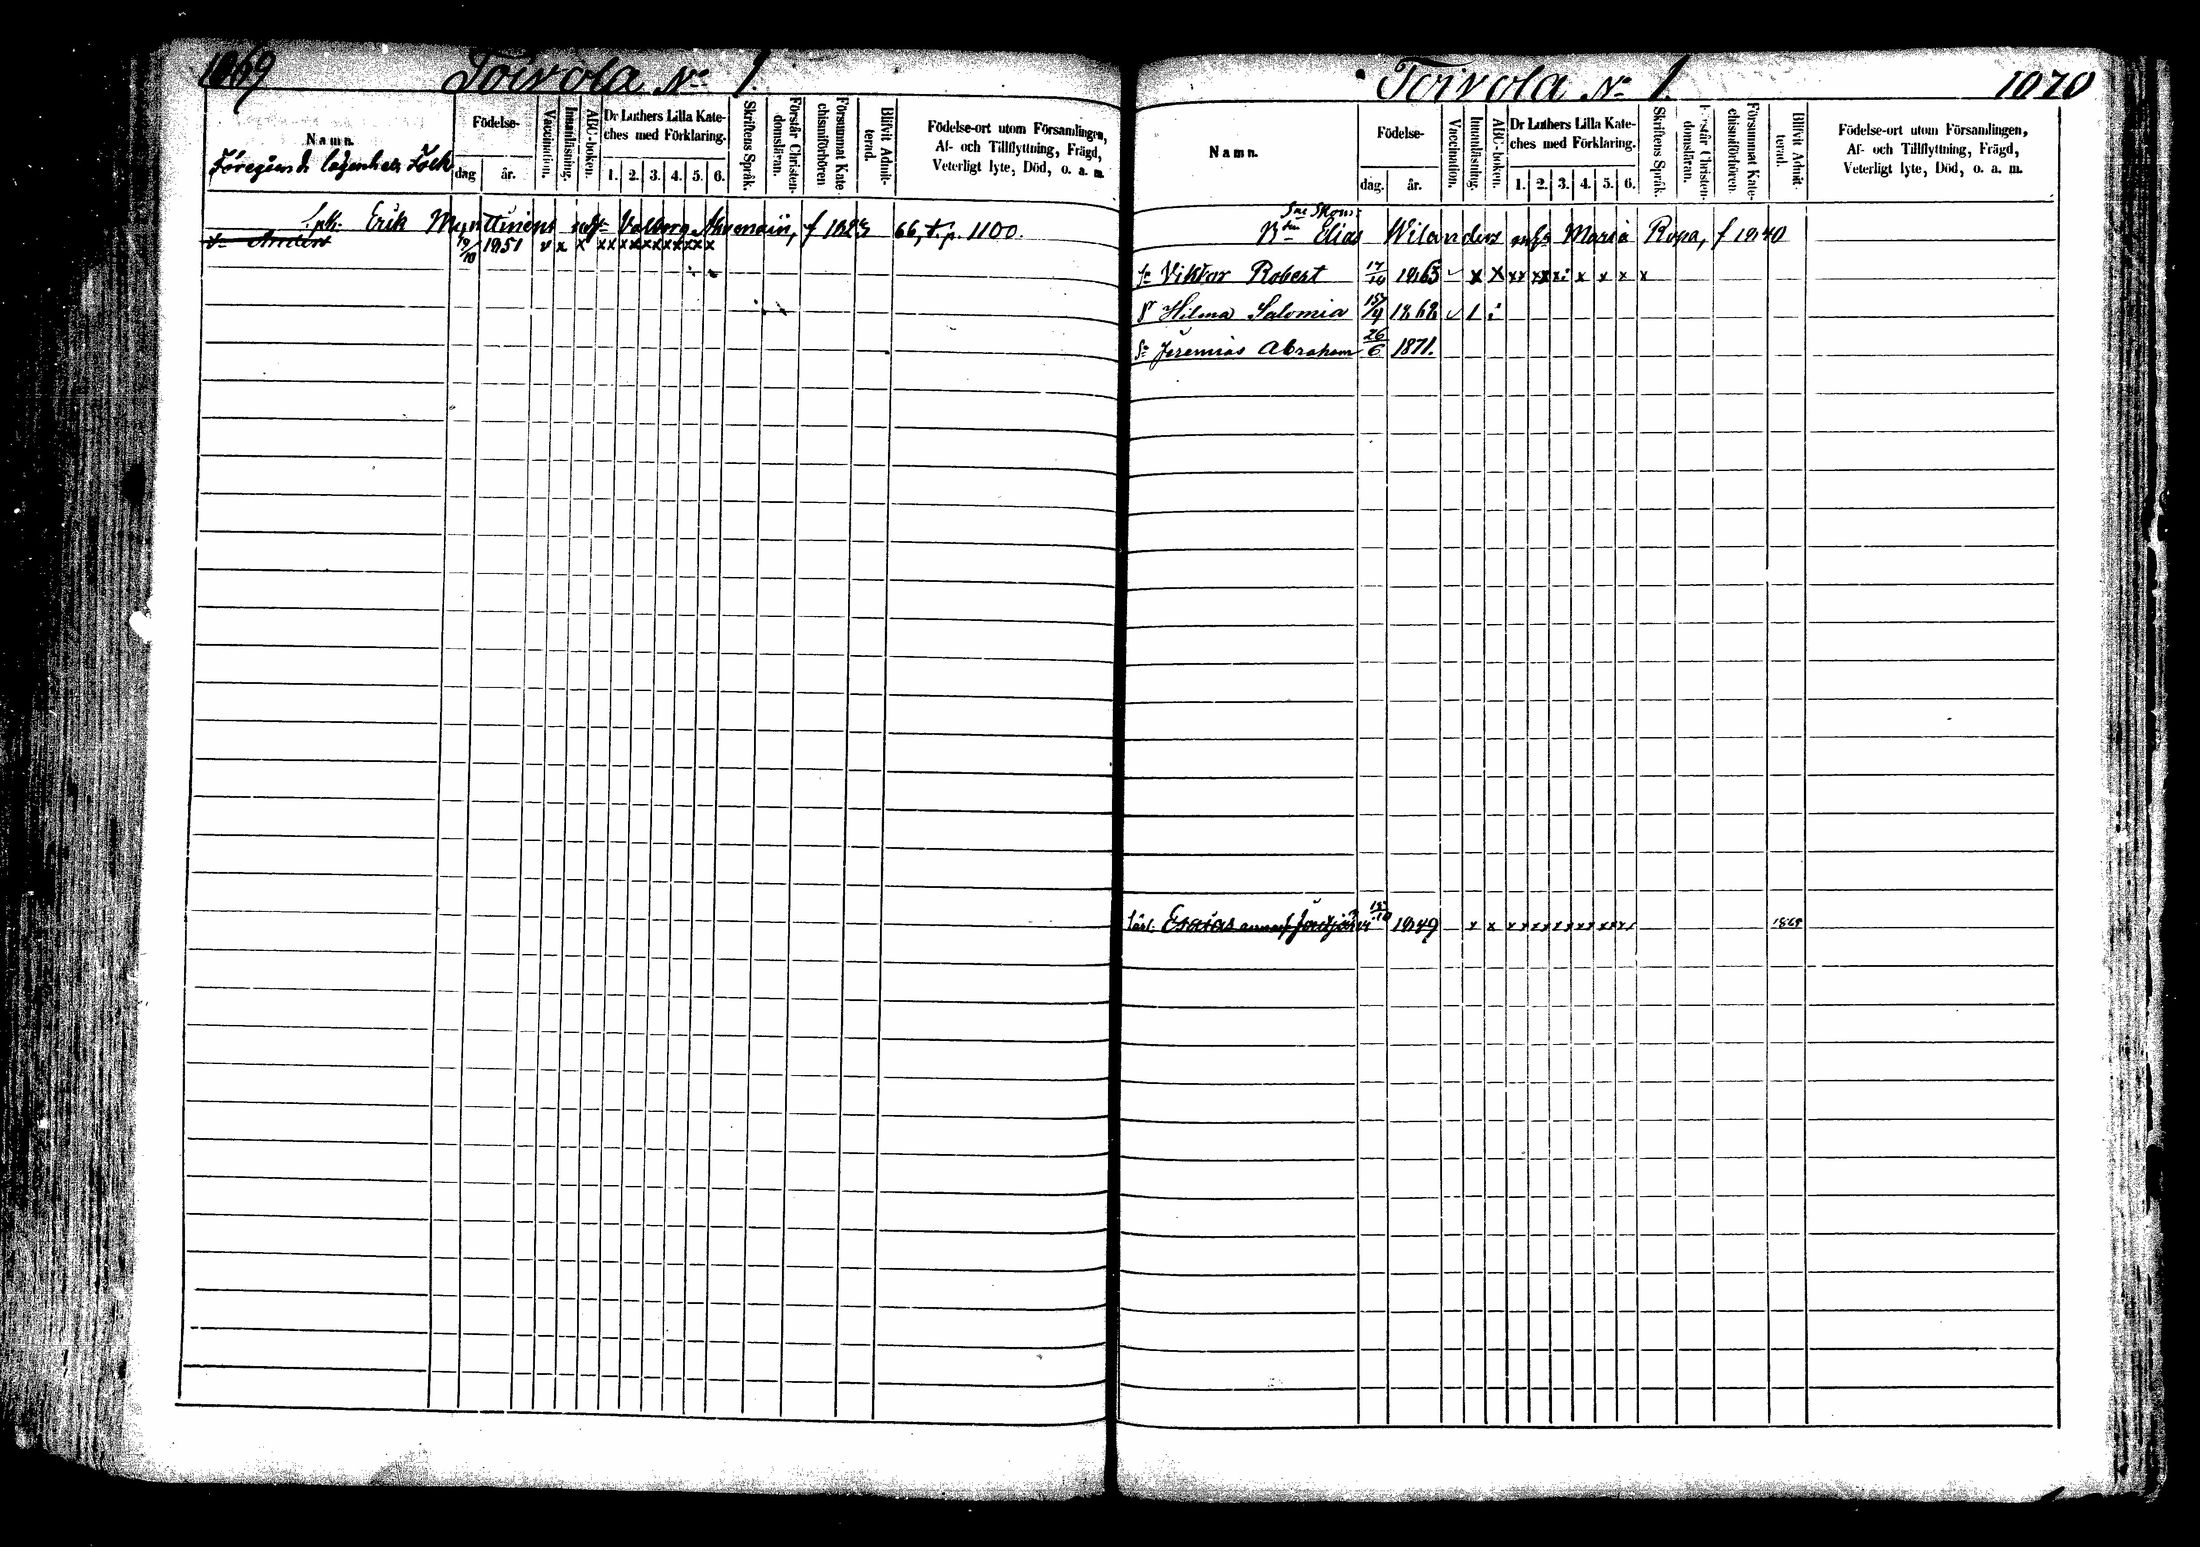 1069
Toivola No 1.
Namn.
Födelse-
dag
år.
Vaccination.
Innanläsning.
ABC-boken.
Dr Luthers Lilla Kate-
ches med Förklaring.
1. 2. 3. 4. 5. 6.
Skriftens Språk.
Förstår Christen-
domsläran.
Försummat Kate-
chismiförhören
Blifvit Admit-
terad.
Födelse-ort utom Församlingen,
Af- och Tillflyttning, Frägd,
Veterligt lyte, Död, o. a. m.
Erik Valborg f 66, 1100.
19/10 1851 v x x xx xx xx xx xx x
Toivola No 1.
1070
Namn.
Födelse-
dag.
år.
Vaccination.
Innanläsning.
ABC-boken.
Dr Luthers Lilla Kate-
ches med Förklaring.
1. 2. 3. 4. 5. 6.
Skriftens Språk.
Förstår Christen-
domsläran.
Försummat Kate-
chismiförhören.
Blifvit Admit-
terad.
Födelse-ort utom Församlingen,
Af- och Tillflyttning, Frägd,
Veterligt lyte, Död, o. a. m.
Elias Wilanders Maria Ropa, f 1840
Sn Viktor Robert 1865
Dr Hilma Salomia 1868
Sn Jeremias Abraham 26/6 1871.
Esaias 1849 x x x x x x x x x x x x x 1868